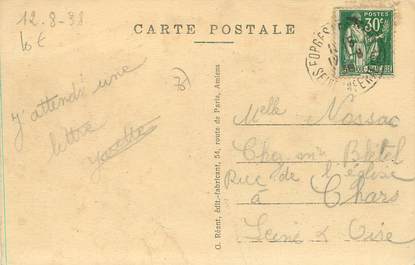 12-8-38
10 €
CARTE POSTALE
POSTES
30c
FORGES
76
J'attends une
lettre
Yvette
G. Réant, édit.-fabricant, 54, route de Paris, Amiens
Melle Nossac
Chez mr
Rue de l'église
à Chars
Seine & Oise